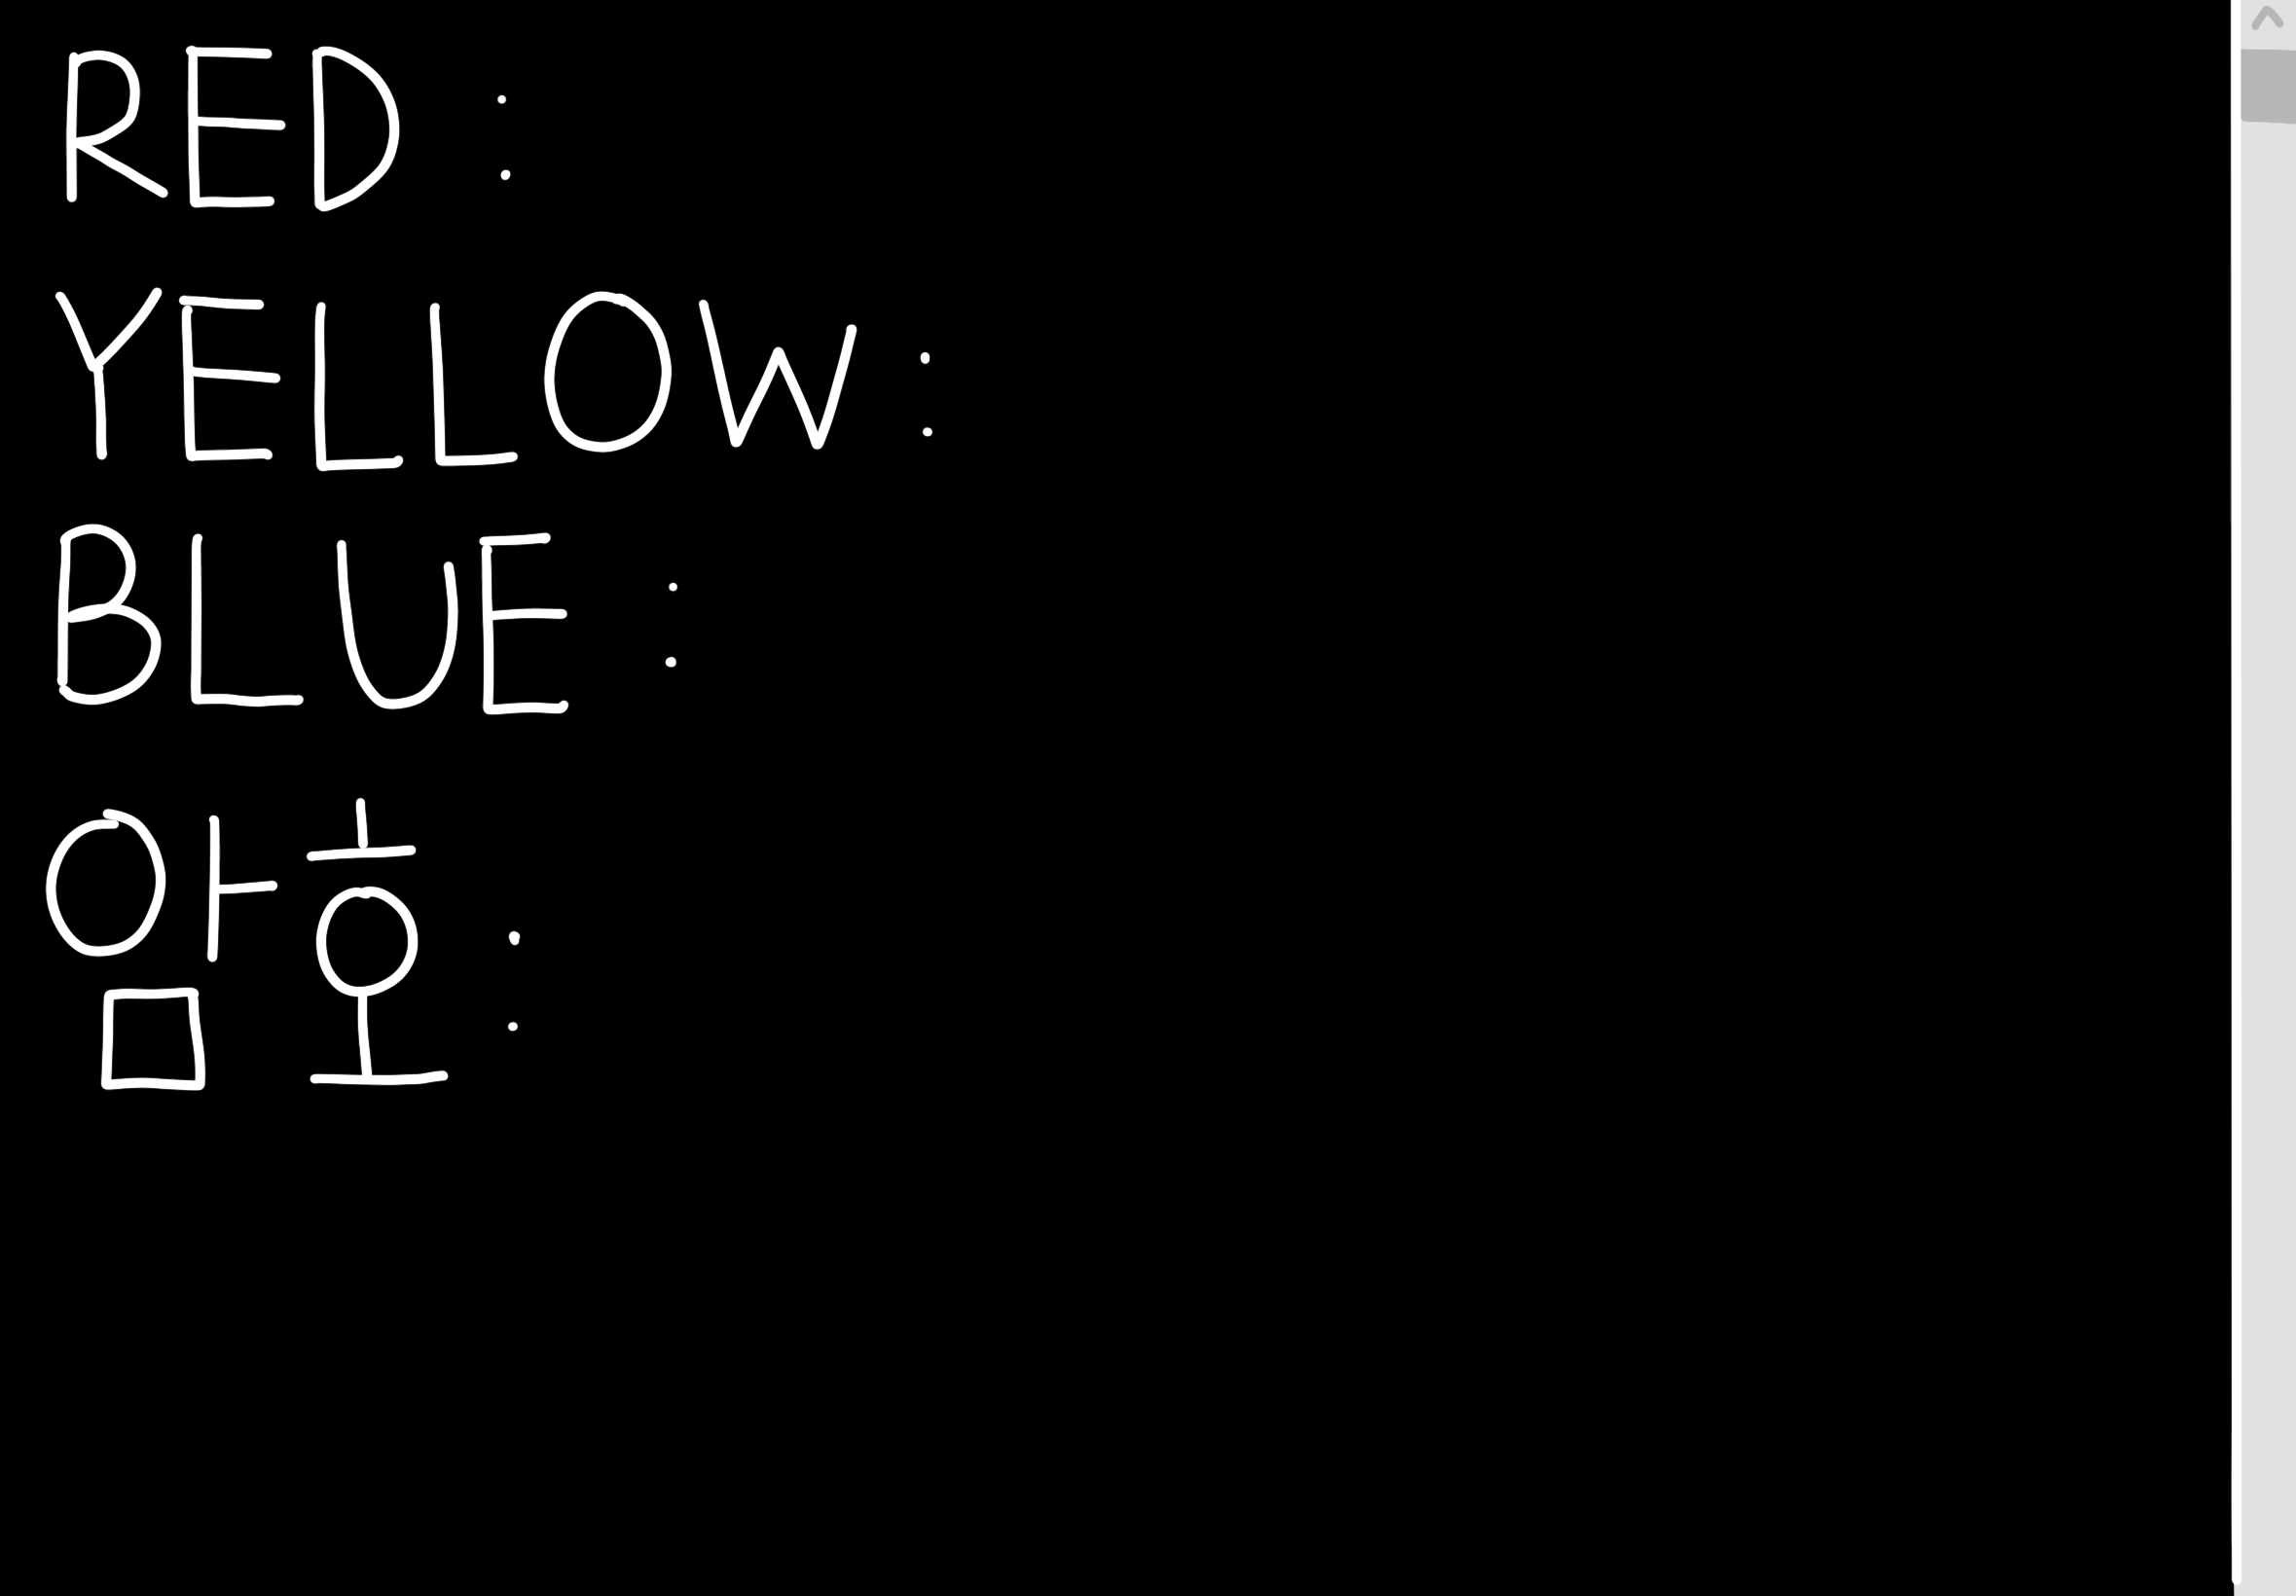 RED :
YELLOW :
BLUE :
암호 :